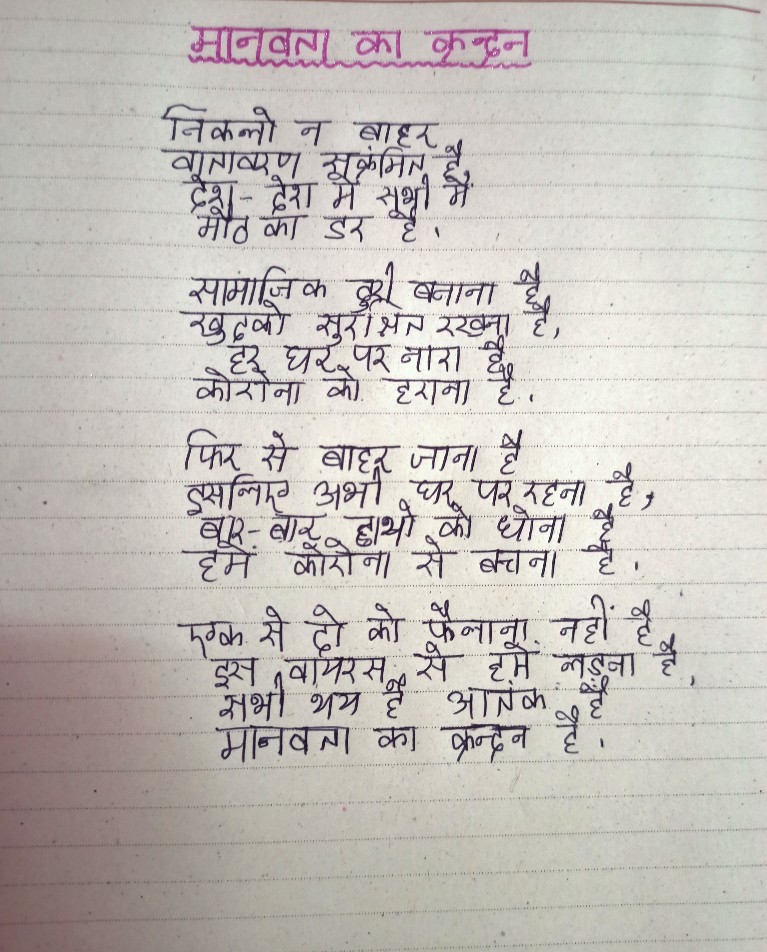 मानवता का क्रन्दन
निकलो न बाहर
वातावरण संक्रमित है,
देश-देश में सभी में
मौत का डर है.
सामाजिक दुरी बनाना है
खुदको सुरक्षित रखना है,
हर घर पर नारा है
कोरोना को हराना है.
फिर से बाहर जाना है
इसलिए अभी घर पर रहना है,
बार-बार हाथो को धोना है
हमें कोरोना से बचना है.
एक से दो को फैलाना नहीं है
इस वायरस से हमें लड़ना है,
सभी है आतंक है
मानवता का क्रन्दन है.